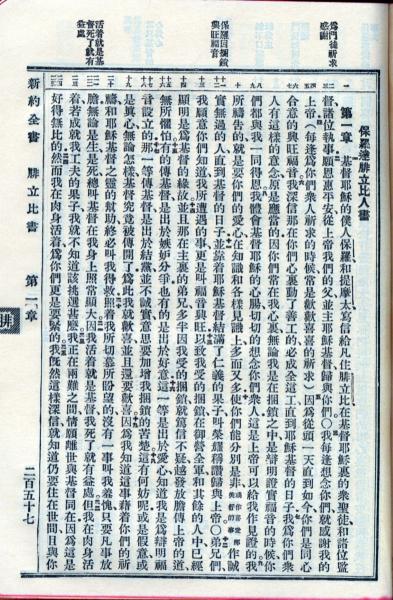 為門徒祈求感謝
保羅因捆鎖興旺福音
活着就是基督死了就有益處
保羅達腓立比人書
第一章 基督耶穌的僕人保羅和提摩太寫信給凡住腓立比在基督耶穌裏的衆聖徒和諸位監
督諸位執事願恩惠平安從上帝我們的父並主耶穌基督歸與你們〇我每逢想念你們就感謝我的
上帝(每逢為你們衆人祈求的時候常是歡歡喜喜的祈求)因為從頭一天直到如今你們是同心
合意的興旺福音我深信那在你們心裏動了善工的必成全這工直到耶穌基督的日子我為你們衆
人有這樣的意念原是應當的因你們常在我心裏無論我是在捆鎖之中是辯明證實福音的時候你
們都與我一同得恩我體會基督耶穌的心腸切切的想念你們衆人這是上帝可以給我作見證的我
所禱告的就是要你們的愛心在知識和各樣見識上多而又多使你們能分別是非 或作喜愛那美好的事 作誠
實無過的人直到基督的日子並靠着耶穌基督結滿了仁義的果子叫榮耀稱讚歸與上帝〇弟兄們
我願意你們知道我所遭遇的事更是叫福音興旺以致我受的捆鎖在御營全軍和其餘的人中已經
顯明是為基督的緣故並且那在主裏的弟兄多半因我受的捆鎖就篤信不疑越發放膽傳上帝的道
無所懼怕有的傳基督是出於嫉妒分爭也有的是出於好意這一等是出於愛心知道我是為辯明福
音設立的那一等傳基督是出於結黨並不誠實意思要加增我捆鎖的苦楚這有何妨呢或是假意或
是眞心無論怎樣基督究竟被傳開了為此我就歡喜並且還要歡喜因為我知道這事藉着你們的祈
禱和耶穌基督之靈的幫助終必叫我得救照着我所切慕所盼望的沒有一事叫我羞愧只要凡事放
膽無論是生是死總叫基督在我身上照常顯大因我活着就是基督我死了就有益處但我在肉身活
着若成就我工夫的果子我就不知道該挑選甚麽我正在兩難之間情願離世與基督同在因為這是
好得無比的然而我在肉身活着為你們更是要緊的我旣然這樣深信就知道仍要住在世間且與你
新約全書 腓立比書 第一章 二百五十七
腓